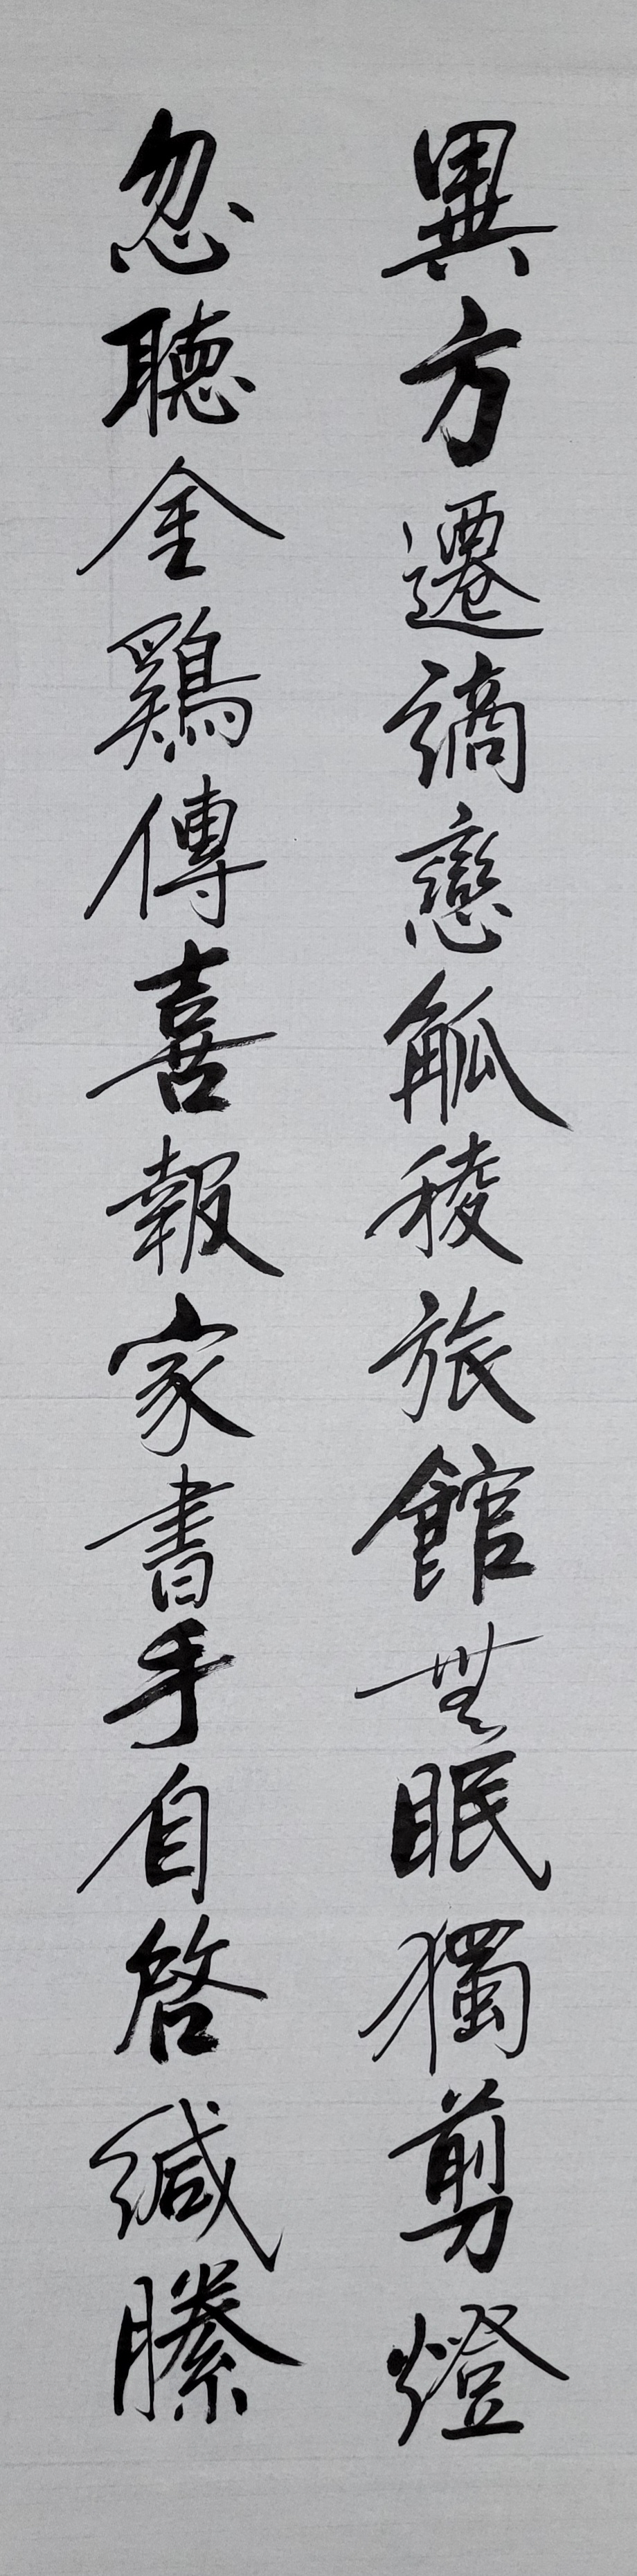 異方遷謫戀觚稜旅館無眠獨剪燈
忽聽金鷄傳喜報家書手自啓緘縢